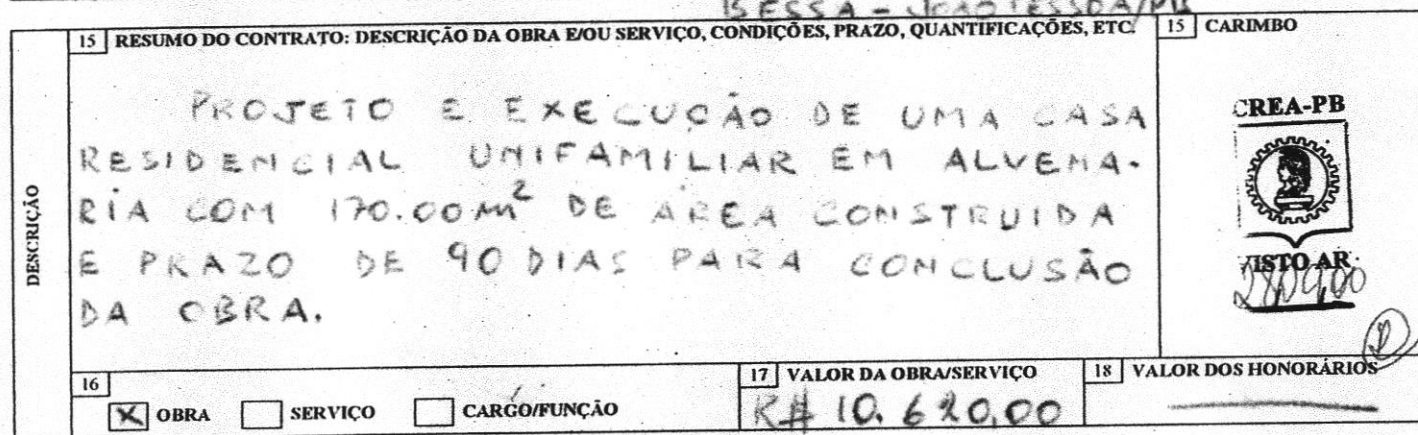 BESSA - JOÃO PESSOA/PB
15 RESUMO DO CONTRATO: DESCRIÇÃO DA OBRA E/OU SERVIÇO, CONDIÇÕES, PRAZO, QUANTIFICAÇÕES, ETC. 15 CARIMBO
DESCRIÇÃO
PROJETO E EXECUÇÃO DE UMA CASA
RESIDENCIAL UNIFAMILIAR EM ALVENA-
RIA COM 170.00m² DE AREA CONSTRUIDA
E PRAZO DE 90 DIAS PARA CONCLUSÃO
DA OBRA.
CREA-PB
VISTO AR
16
X OBRA SERVIÇO CARGO/FUNÇÃO
17 VALOR DA OBRA/SERVIÇO
R$ 10.620,00
18 VALOR DOS HONORÁRIOS